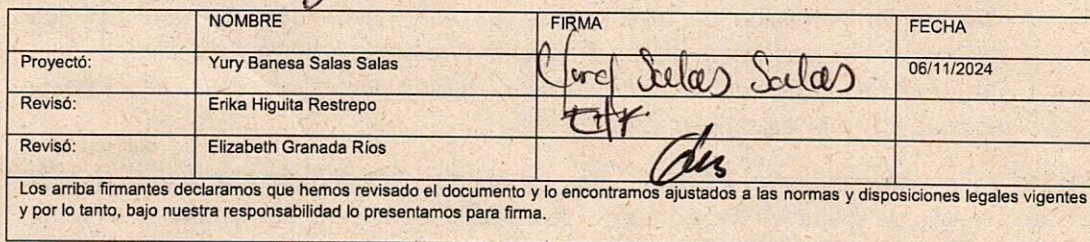 NOMBRE FIRMA FECHA
Proyectó: Yury Banesa Salas Salas Salas Salas 06/11/2024
Revisó: Erika Higuita Restrepo
Revisó: Elizabeth Granada Ríos
Los arriba firmantes declaramos que hemos revisado el documento y lo encontramos ajustados a las normas y disposiciones legales vigentes
y por lo tanto, bajo nuestra responsabilidad lo presentamos para firma.